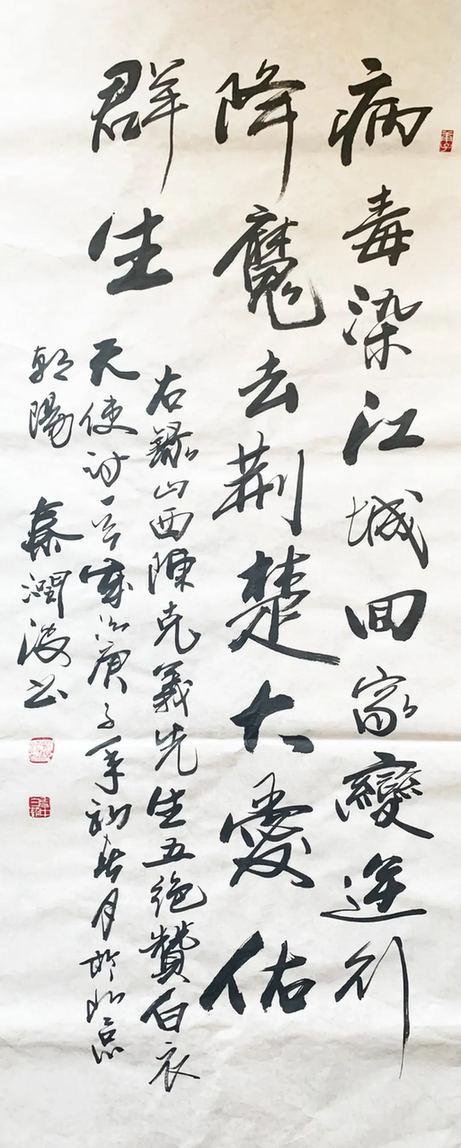 病毒染江城回家變逆行
降魔去荆楚大愛佑
群生
右錄山西陳克義先生五絶贊白衣
天使詩一首歲次庚子年初春月於北京
朝陽 秦潤波书